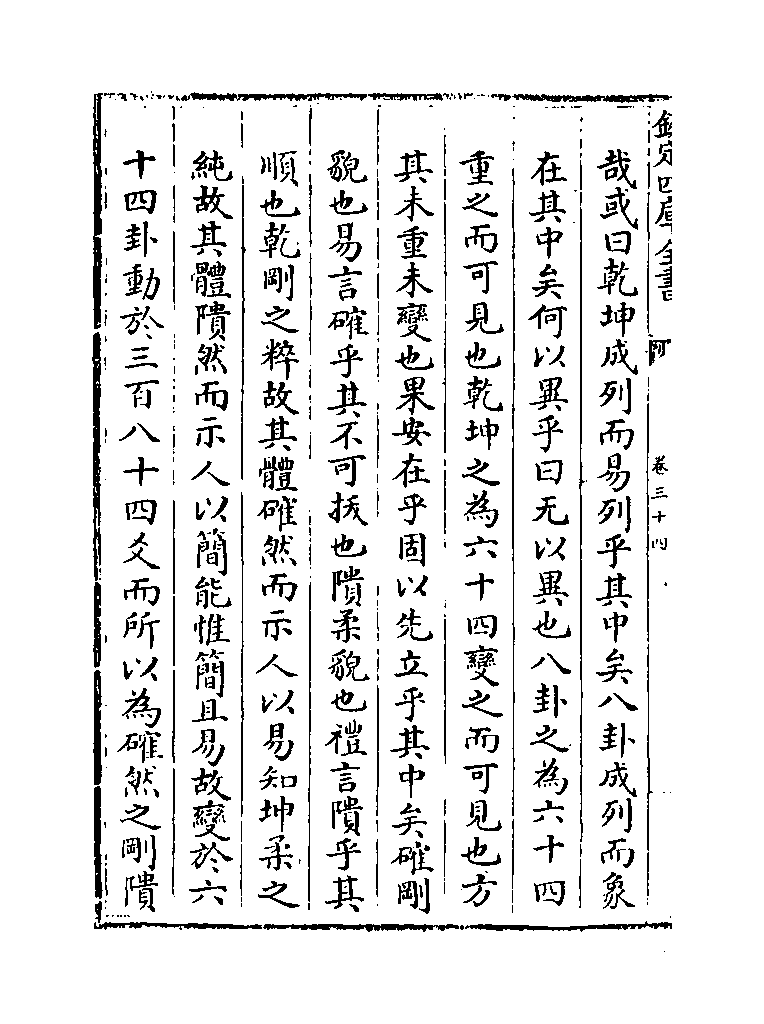 欽定四庫全書
卷三十四
哉或曰乾坤成列而易列乎其中矣八卦成列而象
在其中矣何以異乎曰无以異也八卦之為六十四
重之而可見也乾坤之為六十四變之而可見也方
其未重未變也果安在乎固以先立乎其中矣確剛
貌也易言確乎其不可拔也隤柔貌也禮言隤乎其
順也乾剛之粹故其體確然而示人以易知坤柔之
純故其體隤然而示人以簡能惟簡且易故變於六
十四卦動於三百八十四爻而所以為確然之剛隤